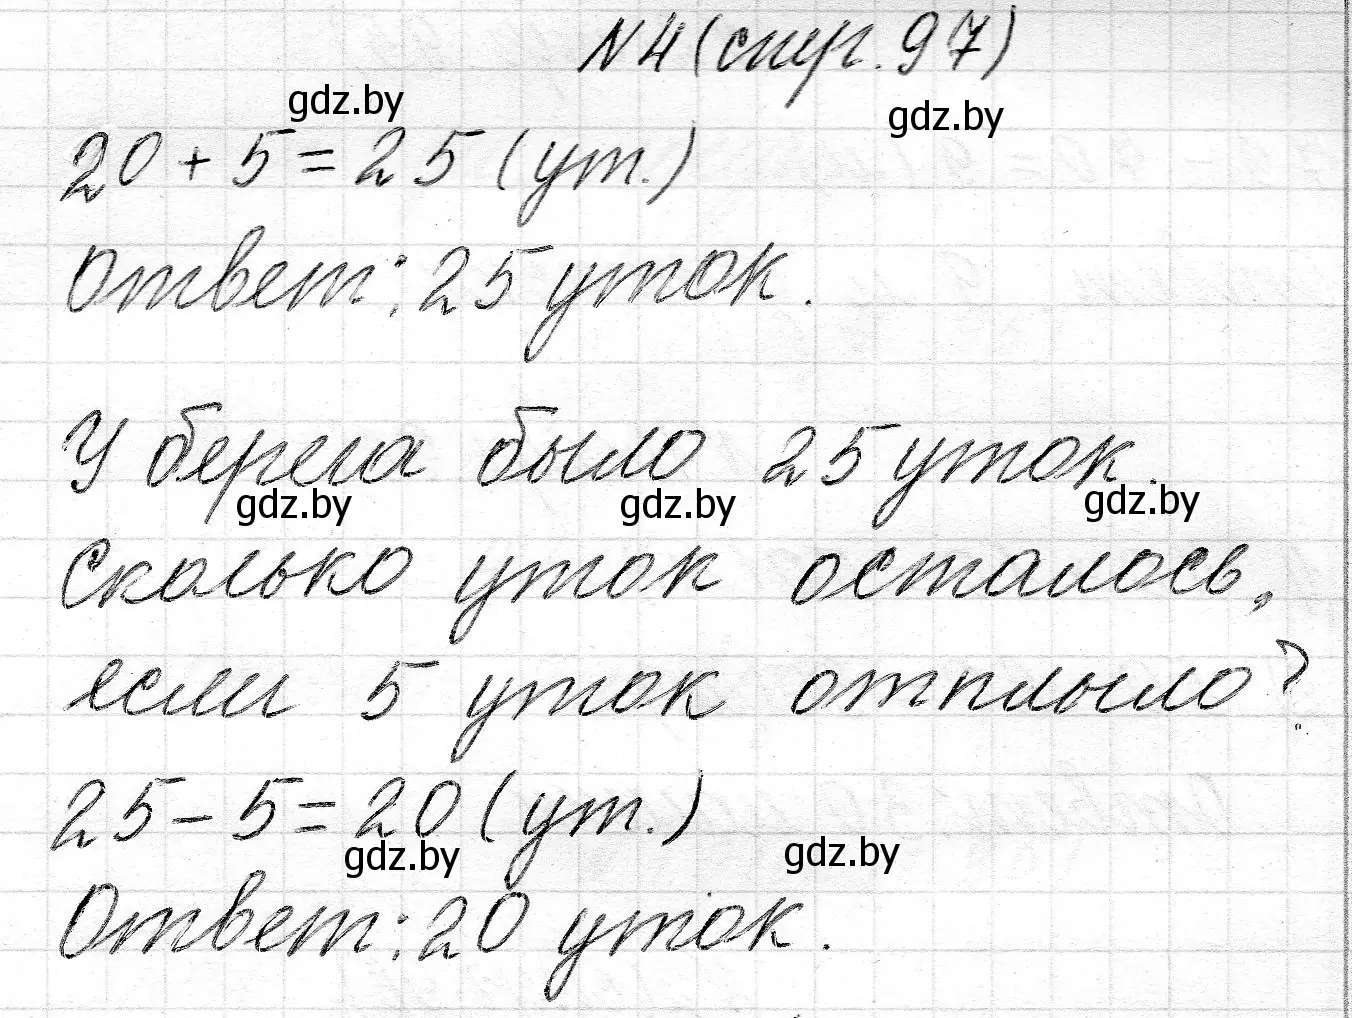 N4 (стр. 97)
gdz.by gdz.by
20 + 5 = 25 (ут.)
Ответ: 25 уток.
У берега было 25 уток.
gdz.by gdz.by gdz.by
Сколько уток осталось,
если 5 уток отплыло?
25 - 5 = 20 (ут.)
gdz.by gdz.by
Ответ: 20 уток.